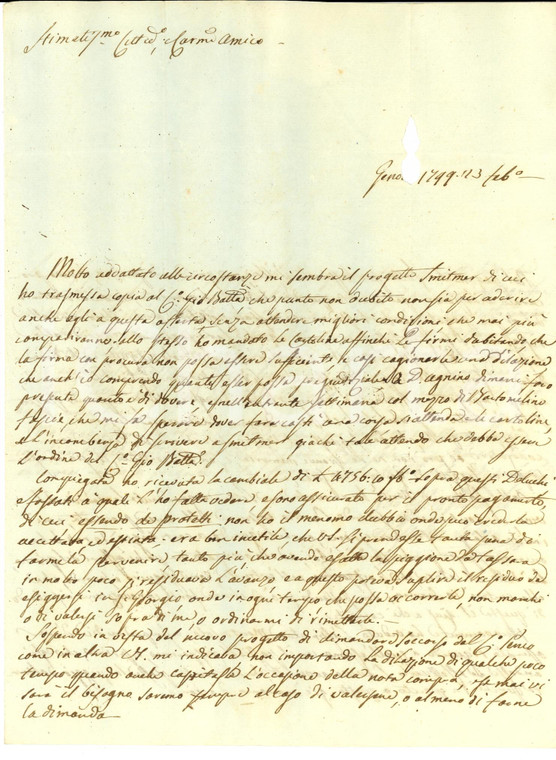 Stimatissmo Cittdo, e Carmo Amico
Geno. 1799. 23 febo
Molto addattato alle circostanze mi sembra il progetto Smitmer di cui
ho trasmessa copia al Co Gio Batta che punto non dubito non sia per aderire
anch' egli a questa offerta, senza attendere migliori condizioni che mai più
compariranno. Allo stesso ho mandato le Cartoline affinchè le firmi dubitando che
la firma con procura non possa essere sufficiente e così cagionarle una dilazione
che anch' io comprendo quanto esser possa pregiudiziale. a D. Agnino dimani farò
presente quanto è di dovere e nell'entrante settimana col mezzo di Bartolomeo
fascie che mi fa sapere dove fare così una corsa si attende le cartoline,
e l'incombenza di scrivere a Smitmer giachè tale attendo che debba essere
l'ordine del Co Gio Batta.
Compiegata ho ricevuta la cambiale di £ 4756.10 fb sopra questi
e Fossati a quali l' ho fatta vedere e sono assicurato per il pronto pagamento,
di cui essendo de Protetti non ho il menomo dubbio onde può crederla
accettata ed essatta. era ben inutile che V.S. si prendesse tanta pena di
farmela pervenire tanto più, che avendo esatta la piggione da Tassara
in molto poco si residuava l'avanzo, e a questo poteva suplire il residuo da
esiggersi in S. Giorgio onde in ogni tempo che possa occorrerle, non manchi
o di valersi sopra di me, o ordinarmi di rimetterle.
Sospendo in vista del nuovo progetto di dimandare soccorso dal Co
come in altra V.S. mi indicava non importando la dilazione di qualche poco
tempo quando anche capitasse l'occasione della nota compra, e se mai vi
sarà il bisogno saremo sempre al caso di valersene, o almeno di farne
la dimanda